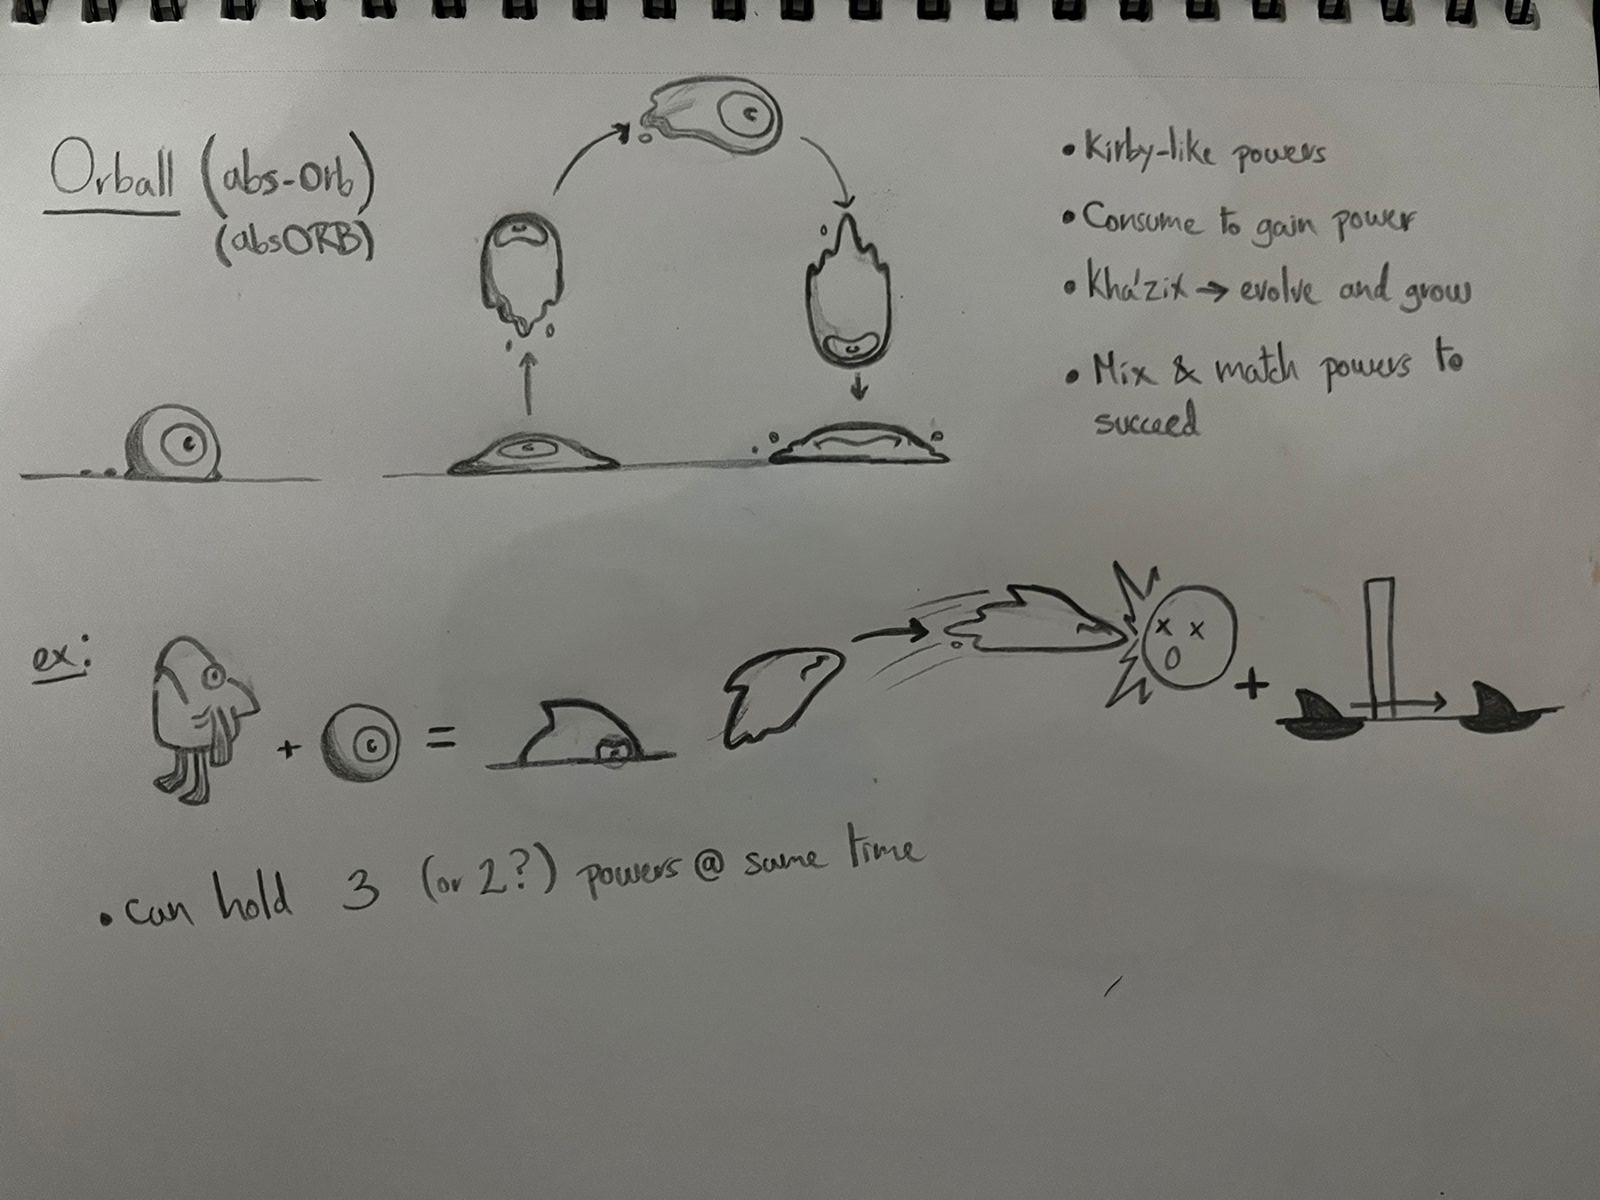 Orball (abs-orb)
(absORB)
• Kirby-like powers
• Consume to gain power
• Kha'zix → evolve and grow
• Mix & match powers to
succeed
ex:
+ = +
x x
• can hold 3 (or 2?) powers @ same time